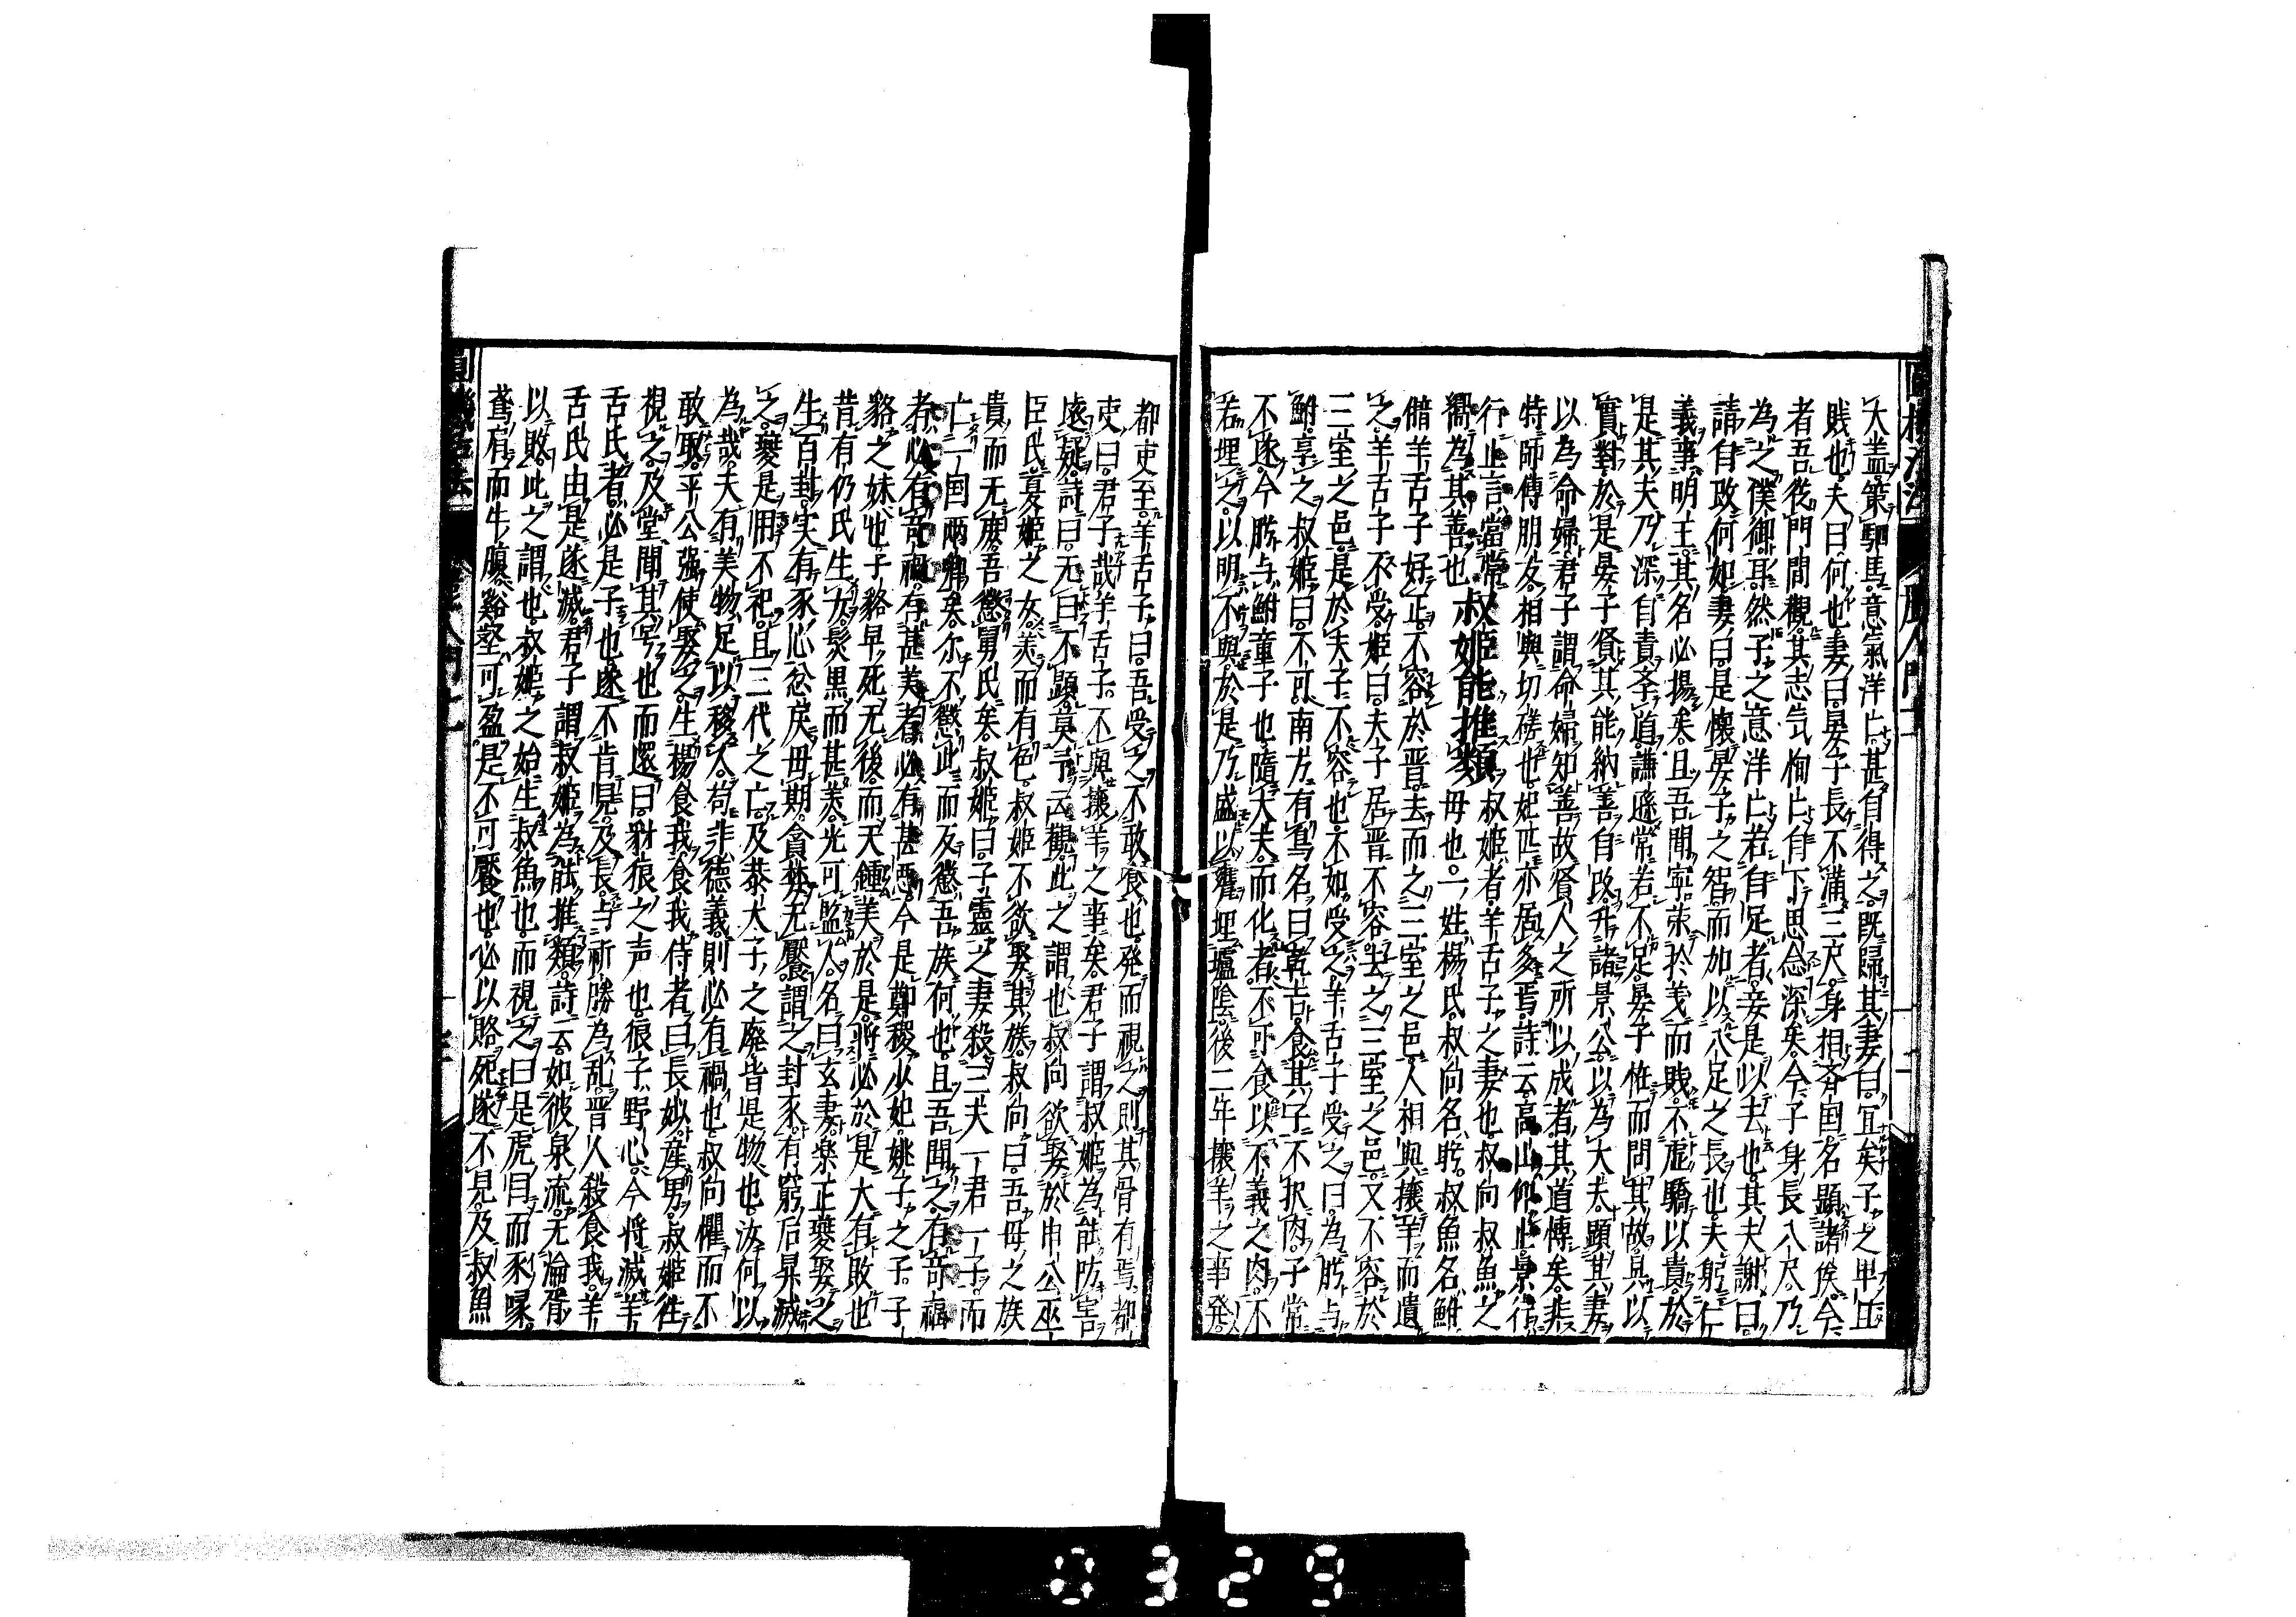 大盖策駟馬意氣洋〻甚自得之既歸其妻曰宜矣子之卑且
賎也夫曰何也妻曰晏子長不満三尺身相斉国名顕諸侯今
者吾従門間觀其志気恂〻自下思念深矣今子身長八尺乃
為之僕御耳然子之意洋〻若自足者妾是以去也其夫謝曰
請自改何如妻曰是懐晏子之智而加以八尺之長也夫躬仁
義事明王其名必揚矣且吾聞寧栄於义而賎不虚驕以貴於
是其夫乃深自責李道謙遜常若不足晏子恠而問其故具以
實對於是晏子賢其能納善自改升諸景公以為大夫顕其妻
以為命婦君子謂命婦知善故賢人之所以成者其道博矣非
特師傅朋友相與切磋也妃匹亦居多焉詩云高山仰止景行
行止言當常
嚮為其善也叔姫能推類叔姫者羊舌子之妻也叔向叔魚之
母也一姓楊氏叔向名肸叔魚名鮒
羊舌子好正不容於晋去而之三室之邑人相與攘羊而遺
之羊舌子不受姫曰夫子居晋不容去之三室之邑又不容於
三室之邑是於夫子不容也不如受之羊舌子受之曰為肸与
鮒享之叔姫曰不可南方有鳥名曰乾吉食其子不択肉子常
不遂今肸与鮒童子也隨大夫而化者不可食以不義之肉不
若埋之以明不與於是乃盛以甕埋壚陰後二年攘羊之事発
都吏至羊舌子曰吾受之不敢食也発而視之則其骨有焉都
吏曰君子哉羊舌子不與攘羊之事矣君子謂叔姫為能防害
遠疑詩曰无曰不顕莫予云觀此之謂也叔向欲娶於申公巫
臣氏夏姫之女美而有色叔姫不欲娶其族叔向曰吾母之族
貴而无庶吾懲舅氏矣叔姫曰子霊之妻殺三夫一君一子而
亡一国両卿矣尓不懲此而反懲吾族何也且吾聞之有奇福
者必有奇禍有甚美者必有甚悪今是鄭穆少妃姚子之子子
貉之妹也子貉早死无後而天鍾美於是将必於是大有敗也
昔有仍氏生女髪黒而甚美光可監人名曰玄妻楽正夔娶之
生百封実有豕心忿戻毋期貪婪无饜謂之封豕有窮后羿滅
之夔是用不祀且三代之亡及恭太子之廃皆是物也汝何以
為哉夫有美物足以移人苟非徳義則必有禍也叔向懼而不
敢取平公强使娶之生楊食我食我侍者曰長姒産男叔姫往
視之及堂聞其号也而還曰豺狼之声也狼子野心今将滅羊
舌氏者必是子也遂不肯見及長与祈勝為乱晋人殺食我羊
舌氏由是遂滅君子謂叔姫為能推類詩云如彼泉流无淪胥
以敗此之謂也叔姫之始生叔魚也而視之曰是虎目而豕喙
鳶肩而牛腹谿壑可盈是不可饜也必以賂死遂不見及叔魚
0329